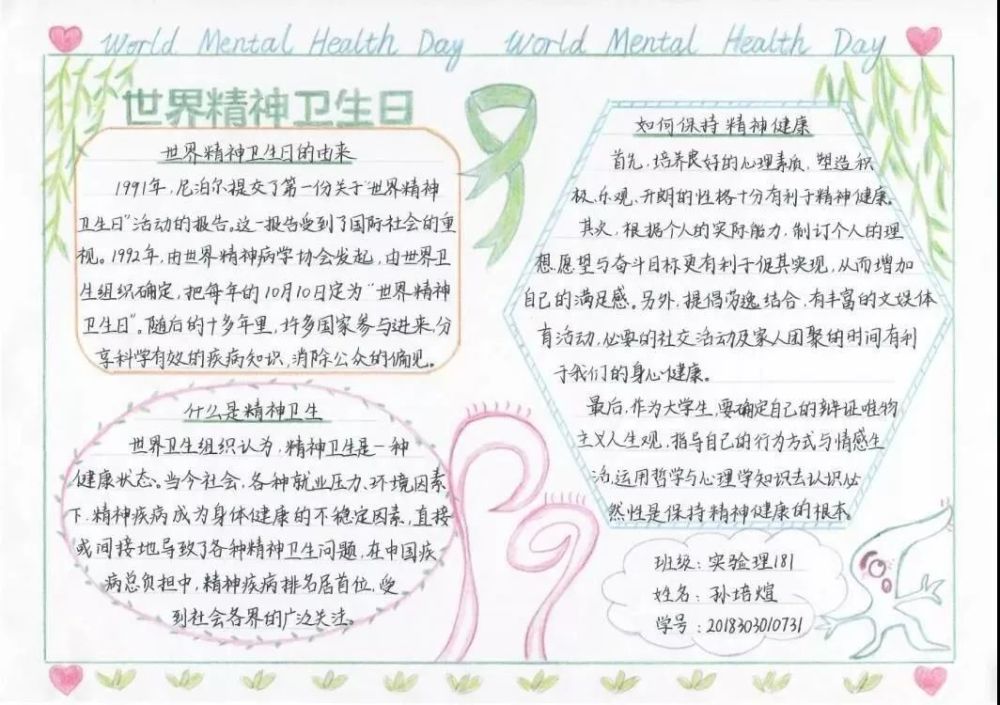 World Mental Health Day World Mental Health Day
世界精神卫生日
世界精神卫生日的由来
1991年,尼泊尔提交了第一份关于“世界精神
卫生日”活动的报告。这一报告受到了国际社会的重
视。1992年,由世界精神病学协会发起,由世界卫
生组织确定,把每年的10月10日定为“世界精神
卫生日”。随后的十多年里,许多国家参与进来,分
享科学有效的疾病知识,消除公众的偏见。
什么是精神卫生
世界卫生组织认为,精神卫生是一种
健康状态。当今社会,各种就业压力、环境因素
下,精神疾病成为身体健康的不稳定因素,直接
或间接地导致了各种精神卫生问题,在中国疾
病总负担中,精神疾病排名居首位,受
到社会各界的广泛关注。
如何保持精神健康
首先,培养良好的心理素质,塑造积
极、乐观、开朗的性格十分有利于精神健康。
其次,根据个人的实际能力,制订个人的理
想愿望与奋斗目标更有利于促其实现,从而增加
自己的满足感。另外,提倡劳逸结合,有丰富的文娱体
育活动,必要的社交活动及家人团聚的时间有利
于我们的身心健康。
最后,作为大学生,要确定自己的辩证唯物
主义人生观,指导自己的行为方式与情感生
活,运用哲学与心理学知识去认识必
然性是保持精神健康的根本
班级:实验理181
姓名:孙培煊
学号:2018303010731